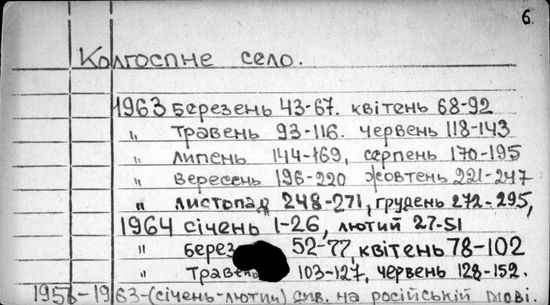 6.
Колгоспне село.
1963 березень 43-67. квітень 68-92
" травень 93-116. червень 118-143
" липень 144-169, серпень 170-195
" вересень 196-220 жовтень 221-247
" листопад 248-271, грудень 272-295,
1964 січень 1-26, лютий 27-51
" берез 52-77, квітень 78-102
" травень 103-127, червень 128-152.
1958-1963-(січень-лютий) див. на російській мові.